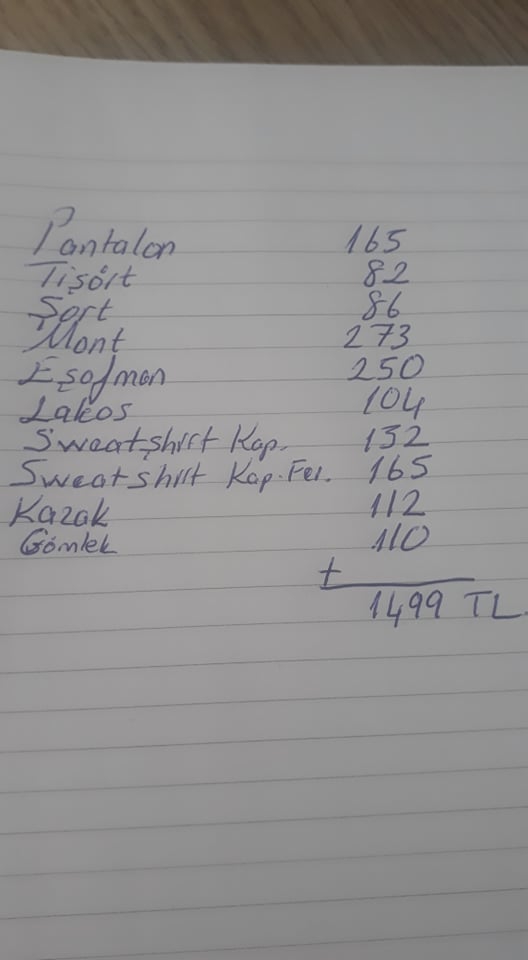 Pantalon 165
Tişört 82
Şort 86
Mont 273
Eşofman 250
Lakos 104
Sweatshirt Kap. 132
Sweatshirt Kap. Fer. 165
Kazak 112
Gömlek 110
+
1499 TL